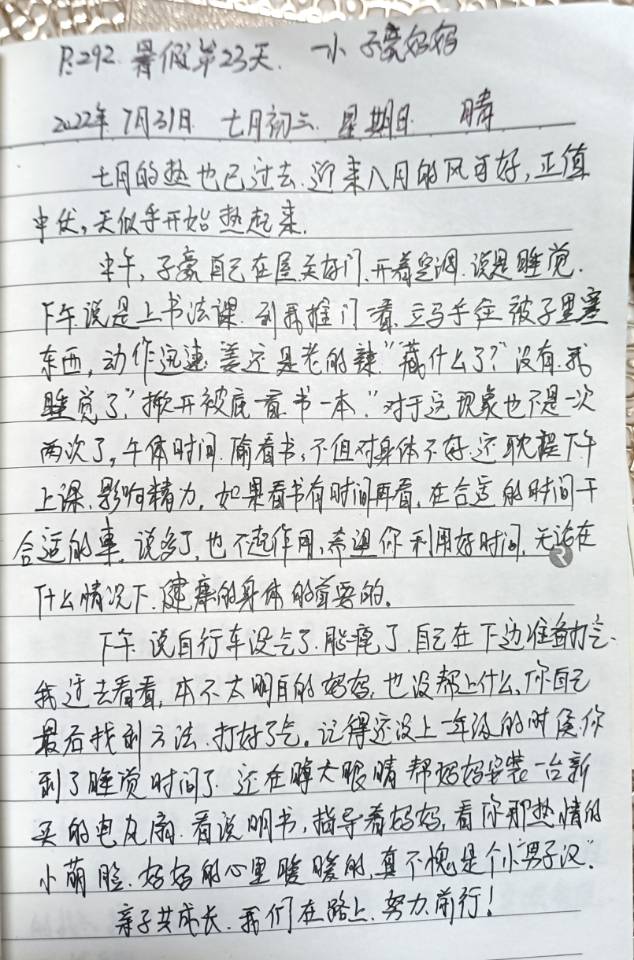 P.292 暑假第23天. 一小 子豪妈妈
2022年7月31日 七月初三 星期日 晴
七月的热也已过去.迎来八月的风可好,正值
中伏,天似乎开始热起来.
中午,子豪自己在屋关好门.开着空调.说是睡觉.
下午说是上书法课.到我推门看.立马手往被子里塞
东西,动作迅速.姜还是老的辣."藏什么了?"没有.我
睡觉了"掀开被底看.书一本."对于这现象也不是一次
两次了,午休时间.偷看书,不但对身体不好.还耽搁下午
上课.影响精力.如果看书有时间再看.在合适的时间干
合适的事.说多了.也不起作用,希望你利用好时间.无论在
什么情况下.健康的身体的首要的.
下午说自行车没气了.胎瘪了.自己在下边准备打气.
我过去看看,本不太明白的妈妈,也没帮上什么.你自己
最后找到方法.打好了气.记得还没上一年级的时侯你
到了睡觉时间了.还在睁大眼睛帮妈妈安装一台新
买的电风扇.看说明书,指导着妈妈,看你那热情的
小萌脸.妈妈的心里暖暖的,真不愧是个小"男子汉".
亲子共成长.我们在路上.努力前行!